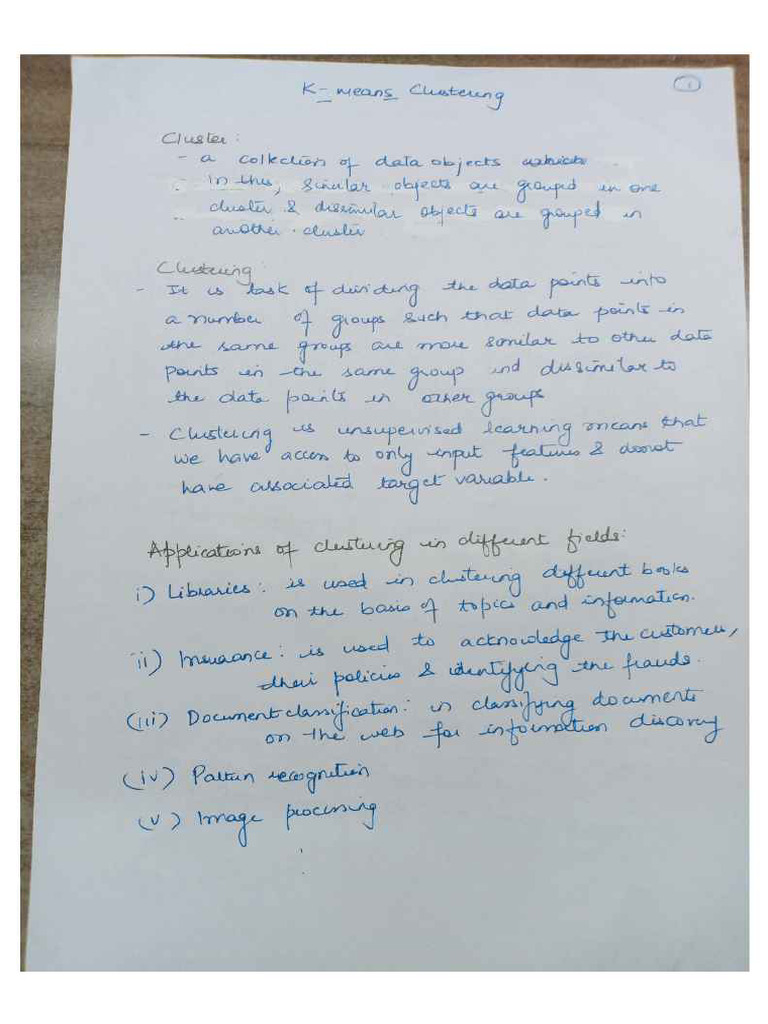 1
K-means Clustering
Cluster:
- a collection of data objects which
In this, similar objects are grouped in one
cluster & dissimilar objects are grouped in
another cluster
Clustering:
- It is task of dividing the data points into
a number of groups such that data points in
the same groups are more similar to other data
points in the same group and dissimilar to
the data points in other groups
- Clustering is unsupervised learning means that
we have access to only input features & donot
have associated target variable.
Applications of clustering in different fields:
i) Libraries: is used in clustering different books
on the basis of topics and information.
ii) Insuraance: is used to acknowledge the customers,
their policies & identifying the frauds.
(iii) Document classification: in classifying documents
on the web for information discovery
(iv) Pattern recognition
(v) Image processing